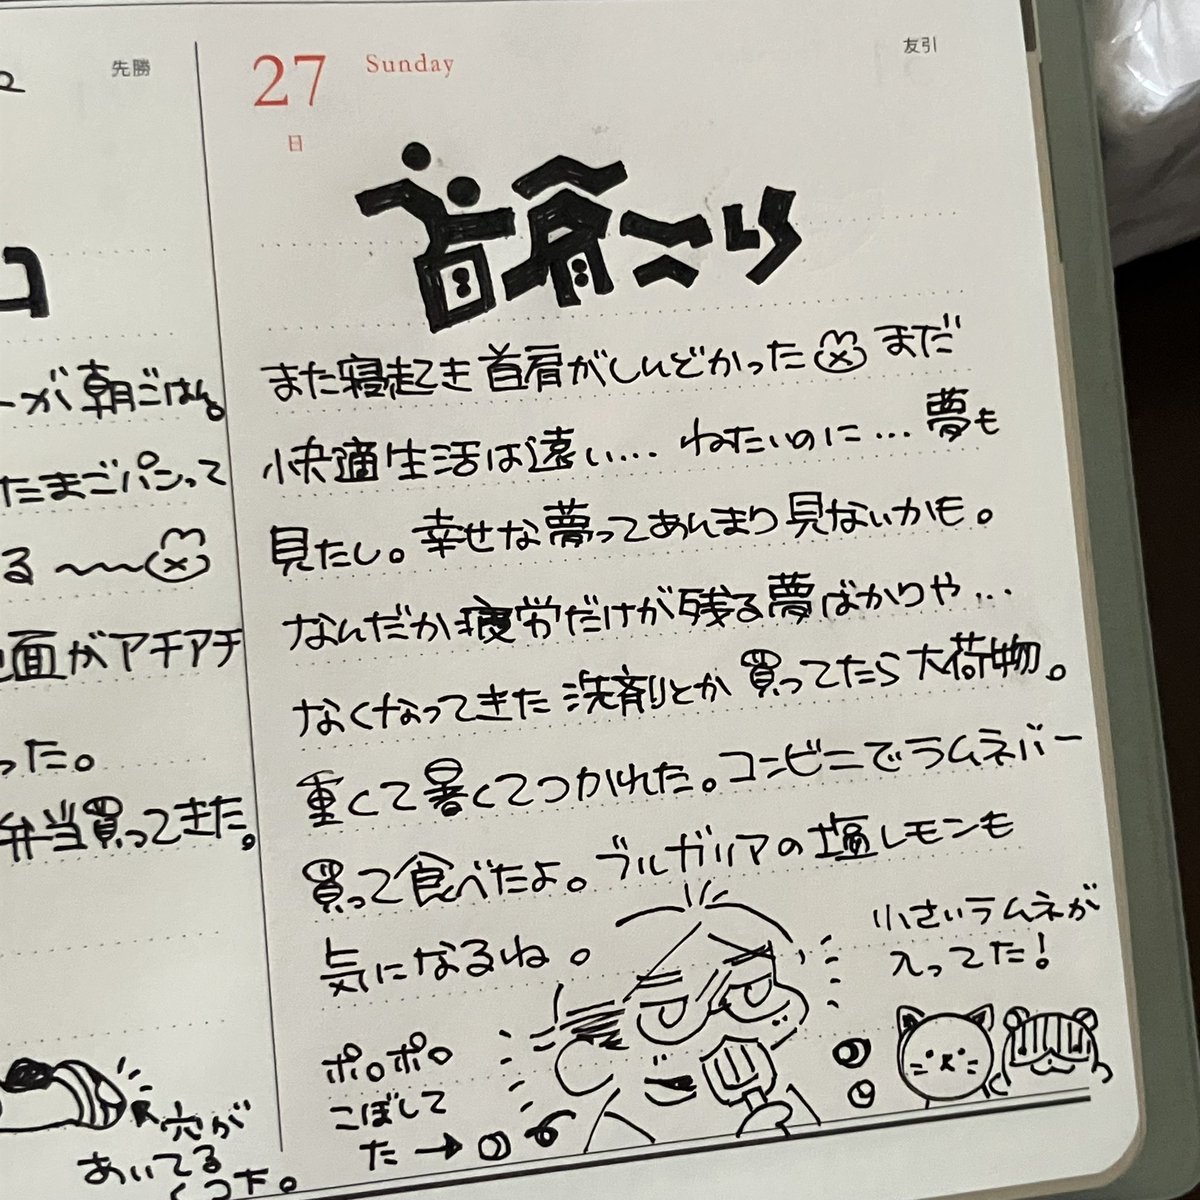 先勝
コ
が朝ごはん。
たまごパンって
る〜〜
面がアチアチ
った。
弁当買ってきた。
穴が
あいてる
くつた。
27 Sunday
友引
日
首肩こり
また寝起き首肩がしんどかった まだ
快適生活は遠い… ねたいのに… 夢も
見たし。幸せな夢ってあんまり見ないかも。
なんだか疲労だけが残る夢ばかりや…
なくなってきた洗剤とか買ってたら大荷物。
重くて暑くてつかれた。コンビニでラムネバー
買って食べたよ。ブルガリアの塩レモンも
気になるね。
小さいラムネが
入ってた!
ポロポロ
こぼして
た→